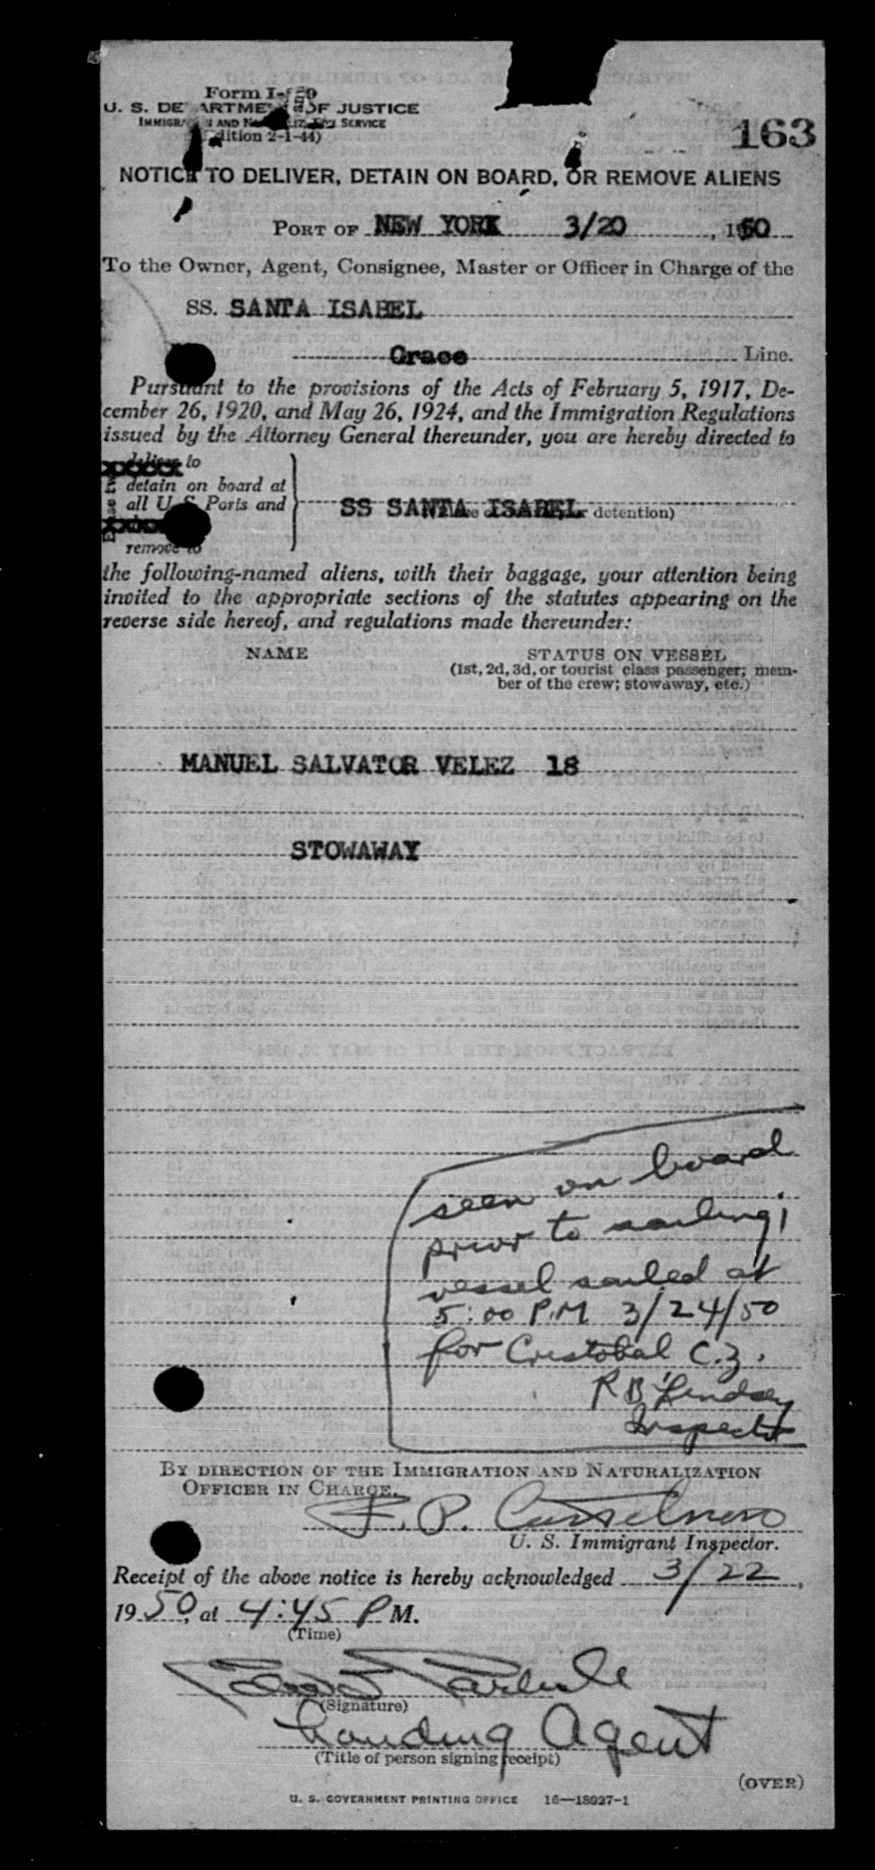 Form I-
U. S. DEPARTMENT OF JUSTICE
IMMIGRATION AND NATURALIZATION SERVICE
(Edition 2-1-44)
163
NOTICE TO DELIVER, DETAIN ON BOARD, OR REMOVE ALIENS
PORT OF NEW YORK 3/20, 1950
To the Owner, Agent, Consignee, Master or Officer in Charge of the
SS. SANTA ISABEL
Grace Line.
Pursuant to the provisions of the Acts of February 5, 1917, De-
cember 26, 1920, and May 26, 1924, and the Immigration Regulations
issued by the Attorney General thereunder, you are hereby directed to
deliver to
detain on board at
all U S Ports and
SS SANTA ISABEL detention)
remove to
the following-named aliens, with their baggage, your attention being
invited to the appropriate sections of the statutes appearing on the
reverse side hereof, and regulations made thereunder:
NAME STATUS ON VESSEL
(1st, 2d, 3d, or tourist class passenger; mem-
ber of the crew; stowaway, etc.)
MANUEL SALVATOR VELEZ 18
STOWAWAY
seen on board
prior to sailing;
vessel sailed at
5:00 P.M 3/24/50
for Cristobal C.Z.
R B Lindsey
Inspector
BY DIRECTION OF THE IMMIGRATION AND NATURALIZATION
OFFICER IN CHARGE.
F. P.
U. S. Immigrant Inspector.
Receipt of the above notice is hereby acknowledged 3/22,
1950, at 4:45 P M.
(Time)
(Signature)
Landing Agent
(Title of person signing receipt)
(OVER)
U. S. GOVERNMENT PRINTING OFFICE 16—18927-1